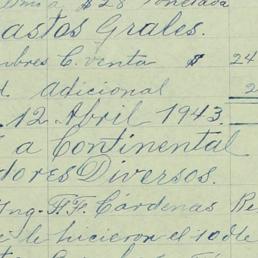 $28 Tonelada
astos Grales.
mbres C. venta $ 24
d. adicional 2
12. Abril 1943.
a Continental
dores Diversos.
Ing. F.F. Cárdenas Re
le hicieron el 10 de